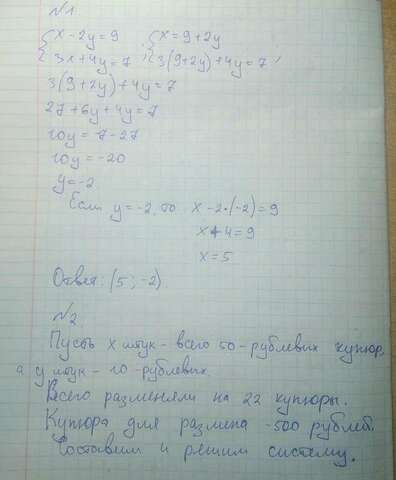 №1
{x-2y=9 {x=9+2y
{3x+4y=7 ; {3(9+2y)+4y=7 ;
3(9+2y)+4y=7
27+6y+4y=7
10y=7-27
10y=-20
y=-2
Если y=-2, то x-2·(-2)=9
x+4=9
x=5
Ответ: (5; -2)
№2
Пусть x штук - всего 50-рублевых купюр,
а y штук - 10-рублевых.
Всего разменяли на 22 купюры.
Купюра для размена -500 рублей.
Составим и решим систему.